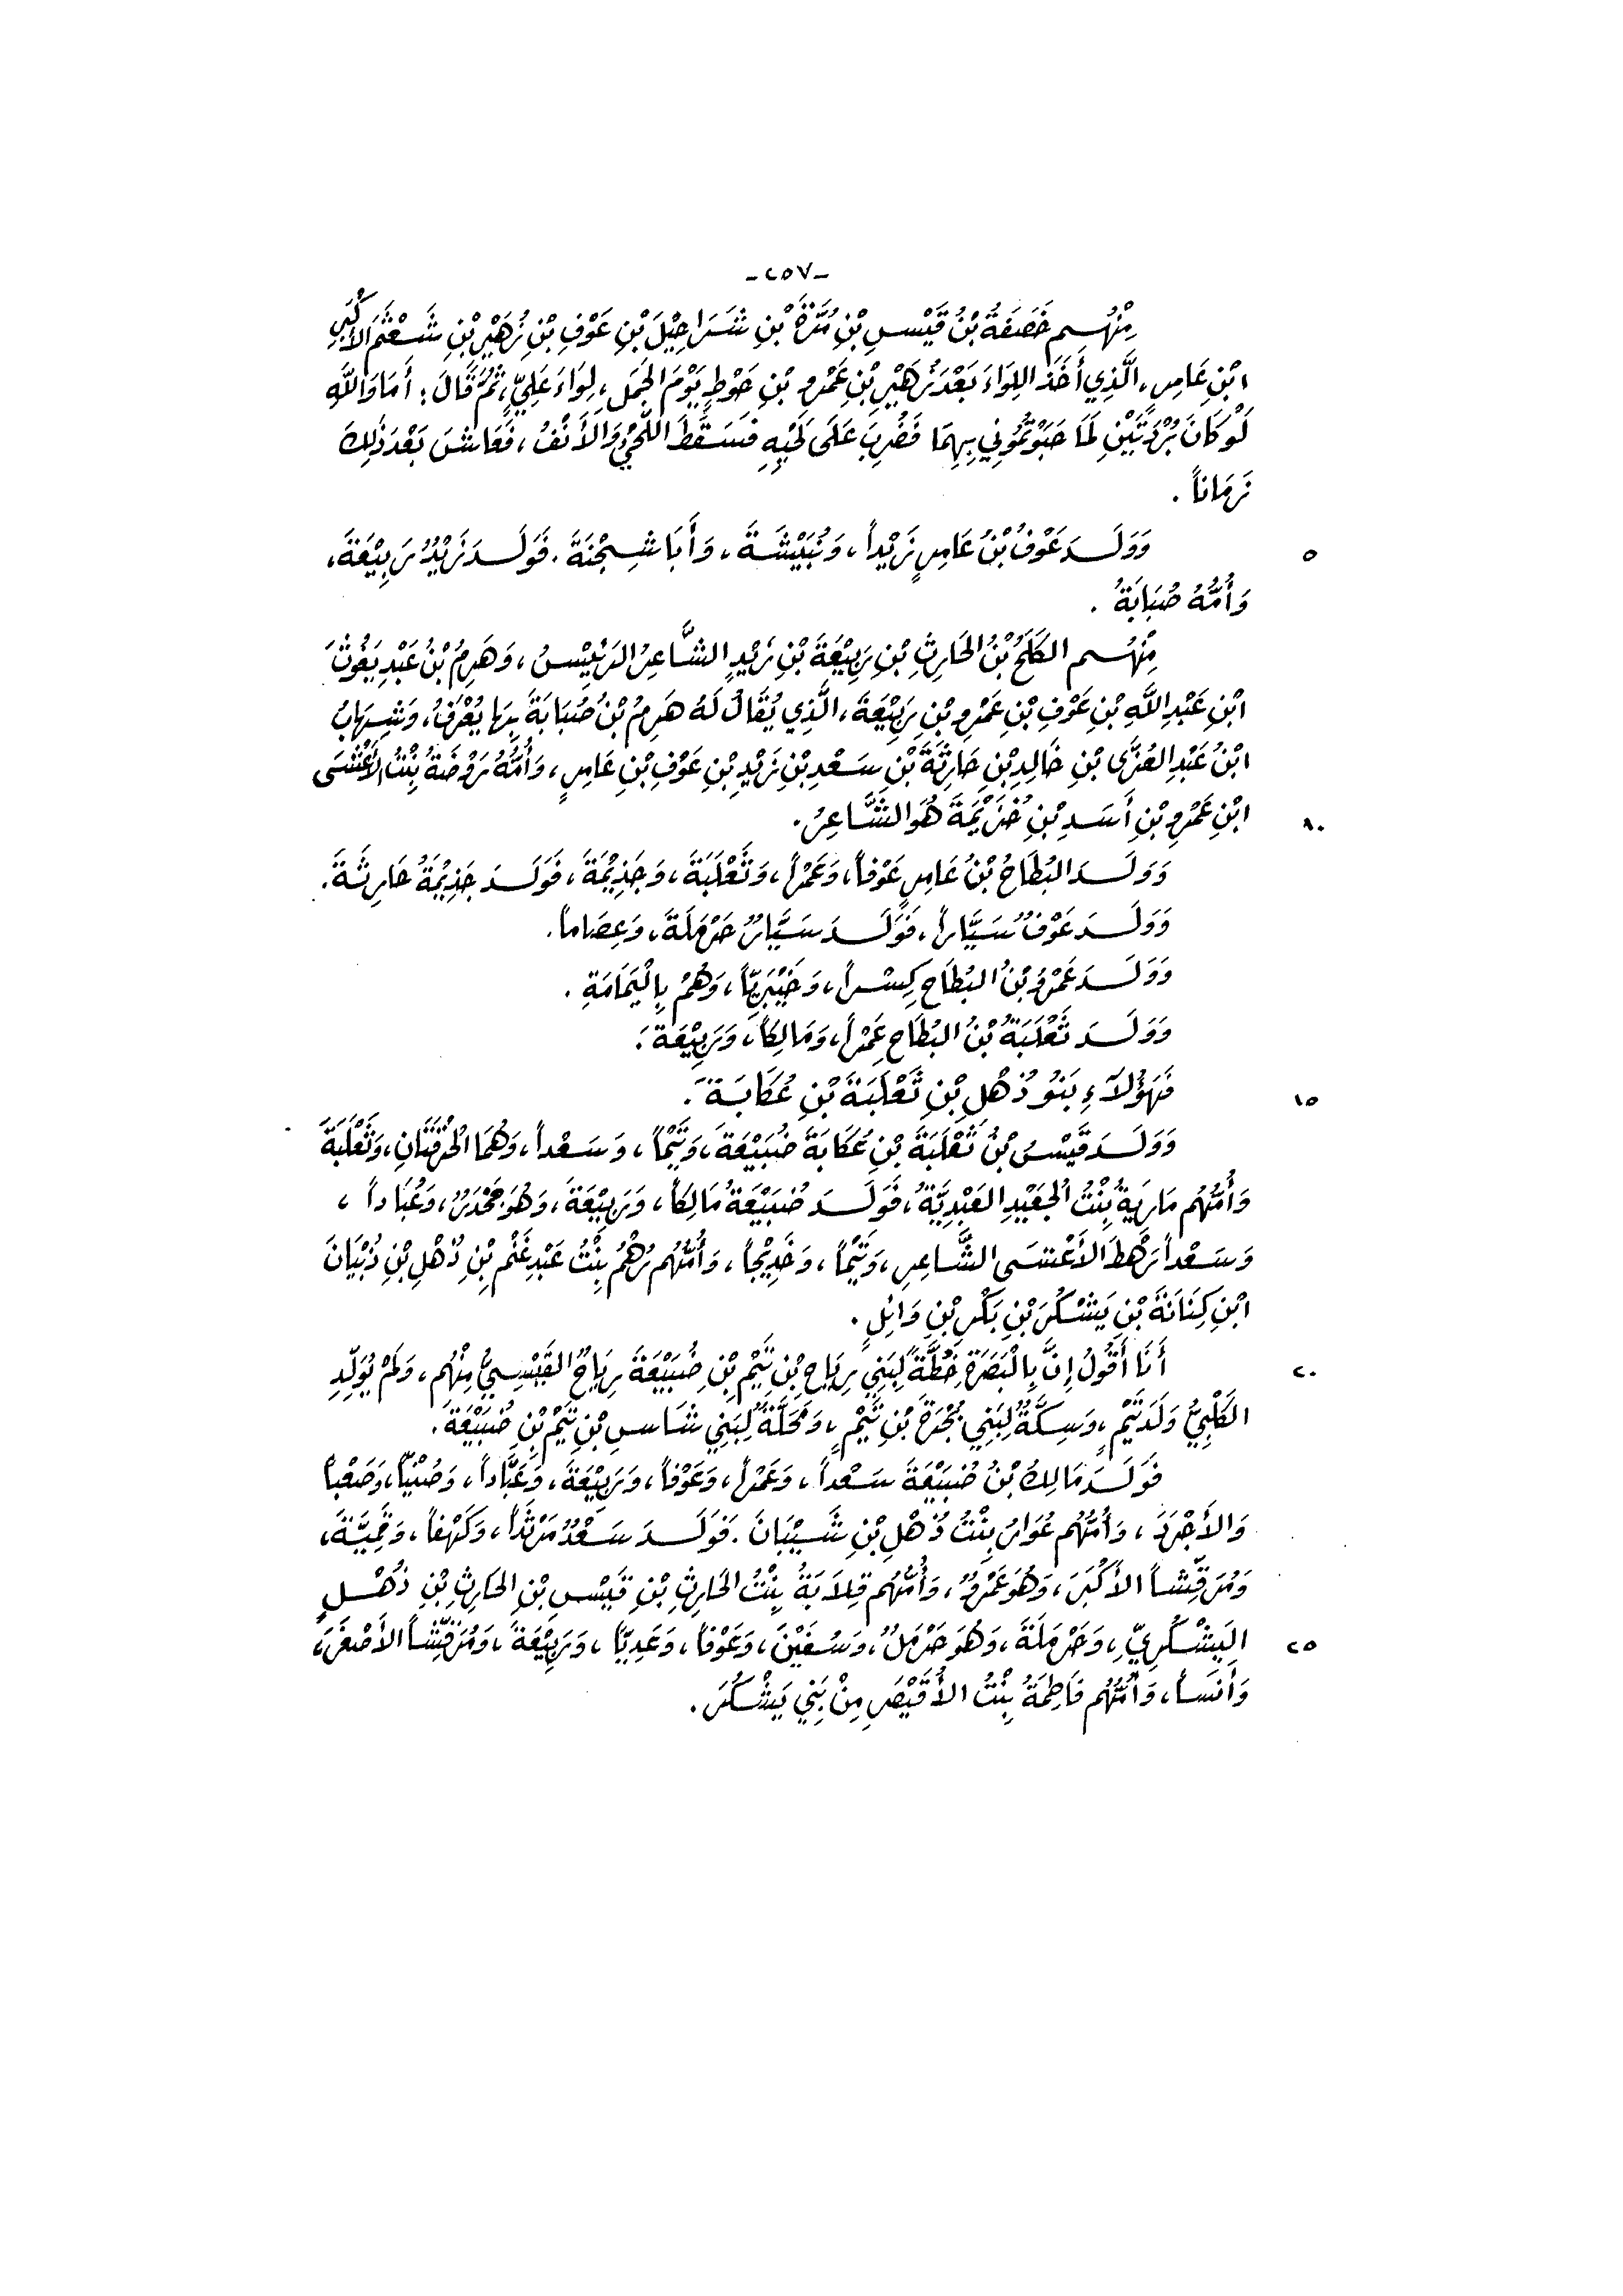 -٢٥٧-
مِنْهُم خَصَفَةُ بْنُ قَيْسِ بْنِ مُرَّةَ بْنِ شَرَاحِيْلَ بْنِ عَوْفِ بْنِ زُهَيْرِ بْنِ شَعْثَمِ الأَكْبَرِ
ابْنِ عَامِرٍ، الَّذِي أَخَذَ اللِوَاءَ بَعْدَ زُهَيْرِ بْنِ عَمْرِو بْنِ حَوْطٍ يَوْمَ الجَمَلِ، لِوَاءَ عَلِيٍّ، ثُمَّ قَالَ: أَمَا وَاللَّهِ
لَوْ كَانَ بُرْدَتَيْنِ لَمَا حَبَوْتُمُونِي بِهِمَا فَضُرِبَ عَلَى لَحْيِهِ فَسَقَطَ اللَّحْيُ وَالأَنْفُ، فَعَاشَ بَعْدَ ذٰلِكَ
زَمَاناً.
وَوَلَدَ عَوْفُ بْنُ عَامِرٍ زَيْداً، وَنُبَيْشَةَ، وَأَبَا شِجْنَةَ. فَوَلَدَ زَيْدُ رَبِيْعَةَ، ٥
وَأُمُّهُ صُبَابَةُ.
مِنْهُم الكَلَحُ بْنُ الحَارِثِ بْنِ رَبِيْعَةَ بْنِ زَيْدٍ الشَّاعِرُ الرَئِيْسُ، وَهَرِمُ بْنُ عَبْدِ يَغُوْثَ
ابْنِ عَبْدِ اللَّهِ بْنِ عَوْفِ بْنِ عَمْرِو بْنِ رَبِيْعَةَ، الَّذِي يُقَالُ لَهُ هَرِمُ بْنُ صُبَابَةَ بِهَا يُعْرَفُ، وَشِهَابُ
ابْنُ عَبْدِ العُزَّى بْنِ خَالِدِ بْنِ حَارِثَةَ بْنِ سَعْدِ بْنِ زَيْدِ بْنِ عَوْفِ بْنِ عَامِرٍ، وَأُمُّهُ رَوْضَةُ بِنْتُ الأَعْشَى
ابْنِ عَمْرِو بْنِ أَسَدِ بْنِ خُزَيْمَةَ هُوَ الشَّاعِرُ. ١٠
وَوَلَدَ البُطَاحُ بْنُ عَامِرٍ عَوْفاً، وَعَمْراً، وَثَعْلَبَةَ، وَجَذِيْمَةَ، فَوَلَدَ جَذِيْمَةُ حَارِثَةَ.
وَوَلَدَ عَوْفُ سَيَّاراً، فَوَلَدَ سَيَّارُ حَرْمَلَةَ، وَعِصَاماً.
وَوَلَدَ عَمْرُو بْنُ البُطَاحِ كِسْراً، وَخَيْبَرِيّاً، وَهُمْ بِالْيَمَامَةِ.
وَوَلَدَ ثَعْلَبَةُ بْنُ البُطَاحِ عَمْراً، وَمَالِكاً، وَرَبِيْعَةَ.
فَهَؤُلآءِ بَنُو ذُهْلِ بْنِ ثَعْلَبَةَ بْنِ عُكَابَةَ. ١٥
وَوَلَدَ قَيْسُ بْنُ ثَعْلَبَةَ بْنِ عُكَابَةَ ضُبَيْعَةَ، وَتَيْماً، وَسَعْداً، وَهُمَا الحُرْقَتَانِ، وَثَعْلَبَةَ
وَأُمُّهُم مَارِيَةُ بِنْتُ الجُعَيْدِ العَبْدِيَّةُ، فَوَلَدَ ضُبَيْعَةُ مَالِكاً، وَرَبِيْعَةَ، وَهُوَ جَحْدَرٌ، وَعُبَاداً،
وَسَعْداً رَهْطَ الأَعْشَى الشَّاعِرِ، وَتَيْماً، وَخَدِيْجاً، وَأُمُّهُم رُهْمُ بِنْتُ عَبْدِ غَنْمِ بْنِ ذُهْلِ بْنِ ذُبْيَانَ
ابْنِ كِنَانَةَ بْنِ يَشْكُرَ بْنِ بَكْرِ بْنِ وَائِلٍ.
أَنَا أَقُولُ إِنَّ بِالْبَصْرَةِ خُطَّةً لِبَنِي رِيَاحِ بْنِ تَيْمِ بْنِ ضُبَيْعَةَ رِيَاحٌ القَيْسِيُّ مِنْهُم، وَلَمْ يُوَلِّدِ ٢٠
الكَلْبِيُّ وَلَدَ تَيْمٍ، وَسِكَّةٌ لِبَنِي بُجْرَةَ بْنِ تَيْمٍ، وَمَحَلَّةً لِبَنِي شَاسِ بْنِ تَيْمِ بْنِ ضُبَيْعَةَ.
فَوَلَدَ مَالِكُ بْنُ ضُبَيْعَةَ سَعْداً، وَعَمْراً، وَعَوْفاً، وَرَبِيْعَةَ، وَعَبَّاداً، وَصُنَيّاً، وَصَعْباً
وَالأَجْرَدَ، وَأُمُّهُم عُوَارُ بِنْتُ ذُهْلِ بْنِ شَيْبَانَ. فَوَلَدَ سَعْدُ مَرْثَداً، وَكَهْفاً، وَقَمِيَّةَ،
وَمُرَقِّشاً الأَكْبَرَ، وَهُوَ عَمْرٌو، وَأُمُّهُم قِلَابَةُ بِنْتُ الحَارِثِ بْنِ قَيْسِ بْنِ الحَارِثِ بْنِ ذُهْلٍ
اليَشْكُرِيِّ، وَحَرْمَلَةَ، وَهُوَ حَرْمَلٌ، وَسُفَيْنَ، وَعَوْفاً، وَعَدِيّاً، وَرَبِيْعَةَ، وَمُرَقِّشاً الأَصْغَرَ، ٢٥
وَأَنَساً، وَأُمُّهُم فَاطِمَةُ بِنْتُ الأُقَيْصِرِ مِنْ بَنِي يَشْكُرَ.